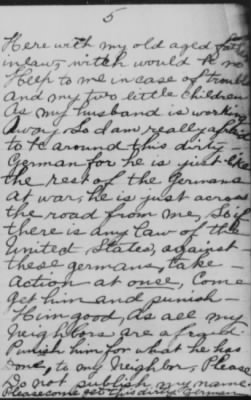 5
Here with my old aged fat
inlaw, witch would be no
Help to me in case of trouble
and my two little children
As my husband is working
away. So I am really afraid
to be around this dirty -
German for he is just like
the rest of the Germans
at war, he is just across
the road from me, So if
there is any law of the
United States, against
these germans, take -
action at once, Come
get him and punish -
Him good, As all my
Neighbors are afraid
Punish him for what he has
Done, to my Neighbor, Please
Do not publish my name
Please come get this dirty German